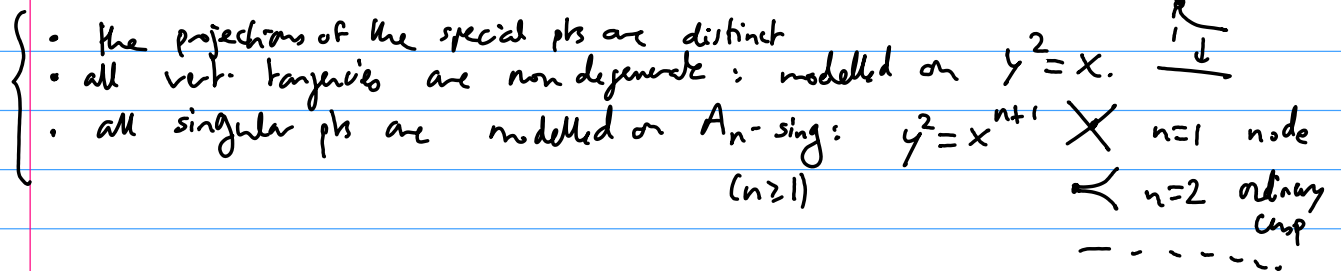 • the projections of the special pts are distinct
• all vert. tangencies are nondegenerate : modelled on y² = x.
• all singular pts are modelled on Aₙ-sing: y² = xⁿ⁺¹ n=1 node
(n≥1) n=2 ordinary
cusp